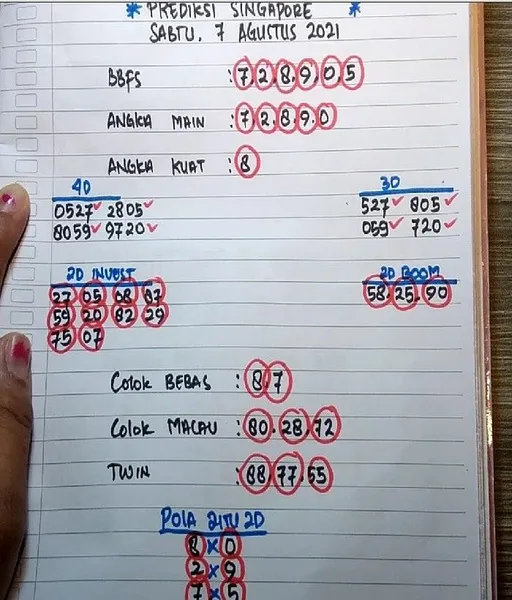 * PREDIKSI SINGAPORE *
SABTU, 7 AGUSTUS 2021
BBFS : 7.2.8.9.0.5
ANGKA MAIN : 7.2.8.9.0
ANGKA KUAT : 8
4D
0527✓ 2805✓
8059✓ 9720✓
3D
527✓ 805✓
059✓ 720✓
2D INVEST
27 05 08 87
59 20 82 29
75 07
2D BOOM
58.25.90
Colok BEBAS : 8.7
Colok MACAU : 80.28.72
TWIN : 88.77.55
POLA JITU 2D
8 x 0
2 x 9
7 x 5